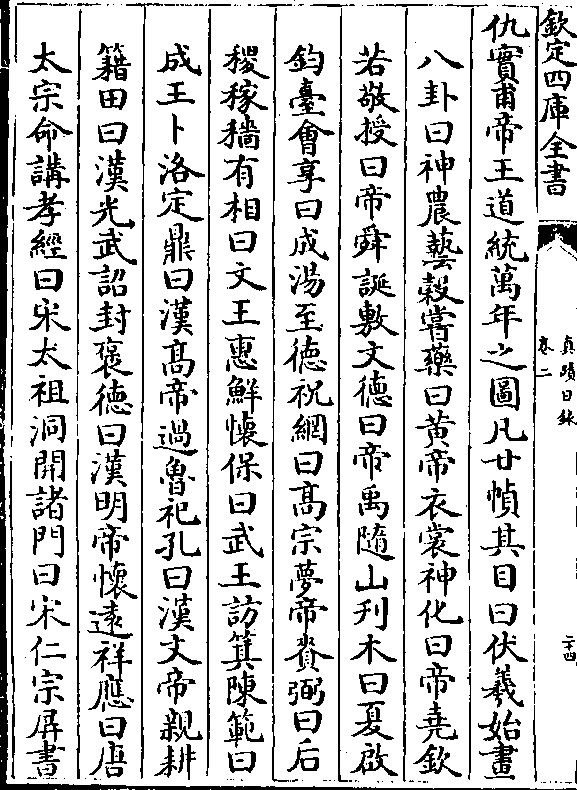 欽定四庫全書
真蹟日錄
卷二
二十四
仇實甫帝王道統萬年之圖凡廿幀其目曰伏羲始畫
八卦曰神農藝穀嘗藥曰黃帝衣裳神化曰帝堯欽
若敬授曰帝舜誕敷文德曰帝禹隨山刋木曰夏啟
鈞臺會享曰成湯至德祝網曰高宗夢帝賚弼曰后
稷稼穡有相曰文王惠鮮懷保曰武王訪箕陳範曰
成王卜洛定鼎曰漢高帝過魯祀孔曰漢文帝親耕
籍田曰漢光武詔封褒德曰漢明帝懷遠祥應曰唐
太宗命講孝經曰宋太祖洞開諸門曰宋仁宗屏書